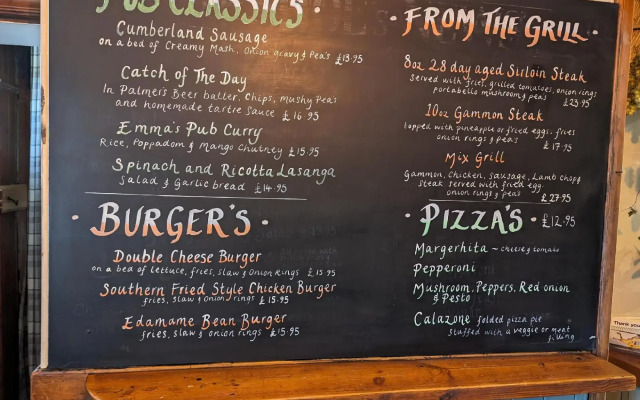 PUB CLASSICS.
Cumberland Sausage
on a bed of Creamy Mash, Onion gravy & Peas £13.95
Catch of The Day
In Palmers Beer batter, Chips, Mushy Peas
and homemade tartre sauce £16.95
Emma's Pub Curry
Rice, Poppadom & Mango Chutney £15.95
Spinach and Ricotta Lasanga
Salad & Garlic bread £14.95
· BURGER'S ·
Double Cheese Burger
on a bed of lettuce, fries, slaw & Onion Rings £15.95
Southern Fried Style Chicken Burger
fries, slaw & Onion rings £15.95
Edamame Bean Burger
fries, slaw & onion rings £15.95
· FROM THE GRILL ·
8oz 28 day aged Sirloin Steak
Served with fries, grilled tomatoes, onion rings
portabello mushroom & peas
£23.95
10oz Gammon Steak
topped with pineapple or fried eggs, fries
onion rings & pea's
£17.95
Mix Grill
Gammon, Chicken, Sausage, Lamb Chop &
Steak served with fried egg,
onion rings & peas
£27.95
· PIZZA'S · £12.95
Margerhita ~ cheese & tomato
Pepperoni
Mushroom, Peppers, Red onion
& Pesto
Calazone folded pizza pie
stuffed with a veggie or meat
filling
Thank you